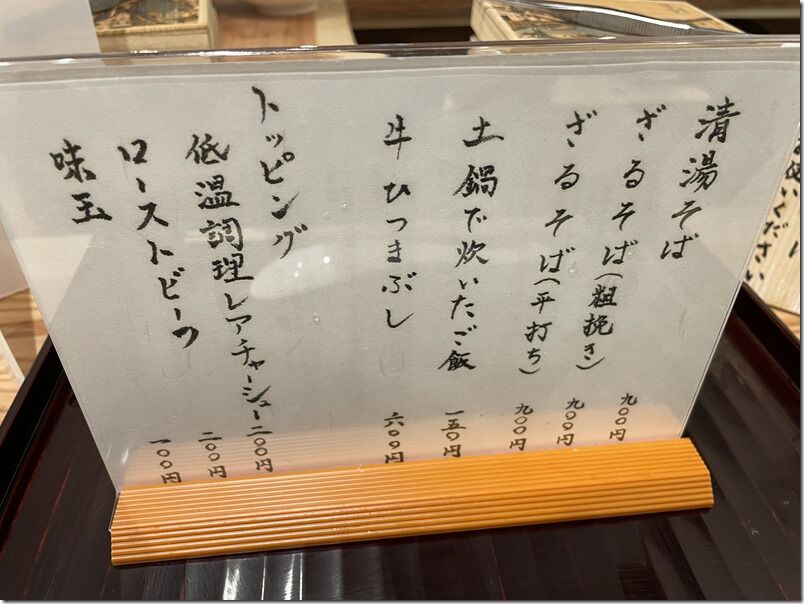 清湯そば 九〇〇円
ざるそば(粗挽き) 九〇〇円
ざるそば(平打ち) 九〇〇円
土鍋で炊いたご飯 一五〇円
牛ひつまぶし 六〇〇円
トッピング
低温調理レアチャーシュー 二〇〇円
ローストビーフ 二〇〇円
味玉 一〇〇円
ください